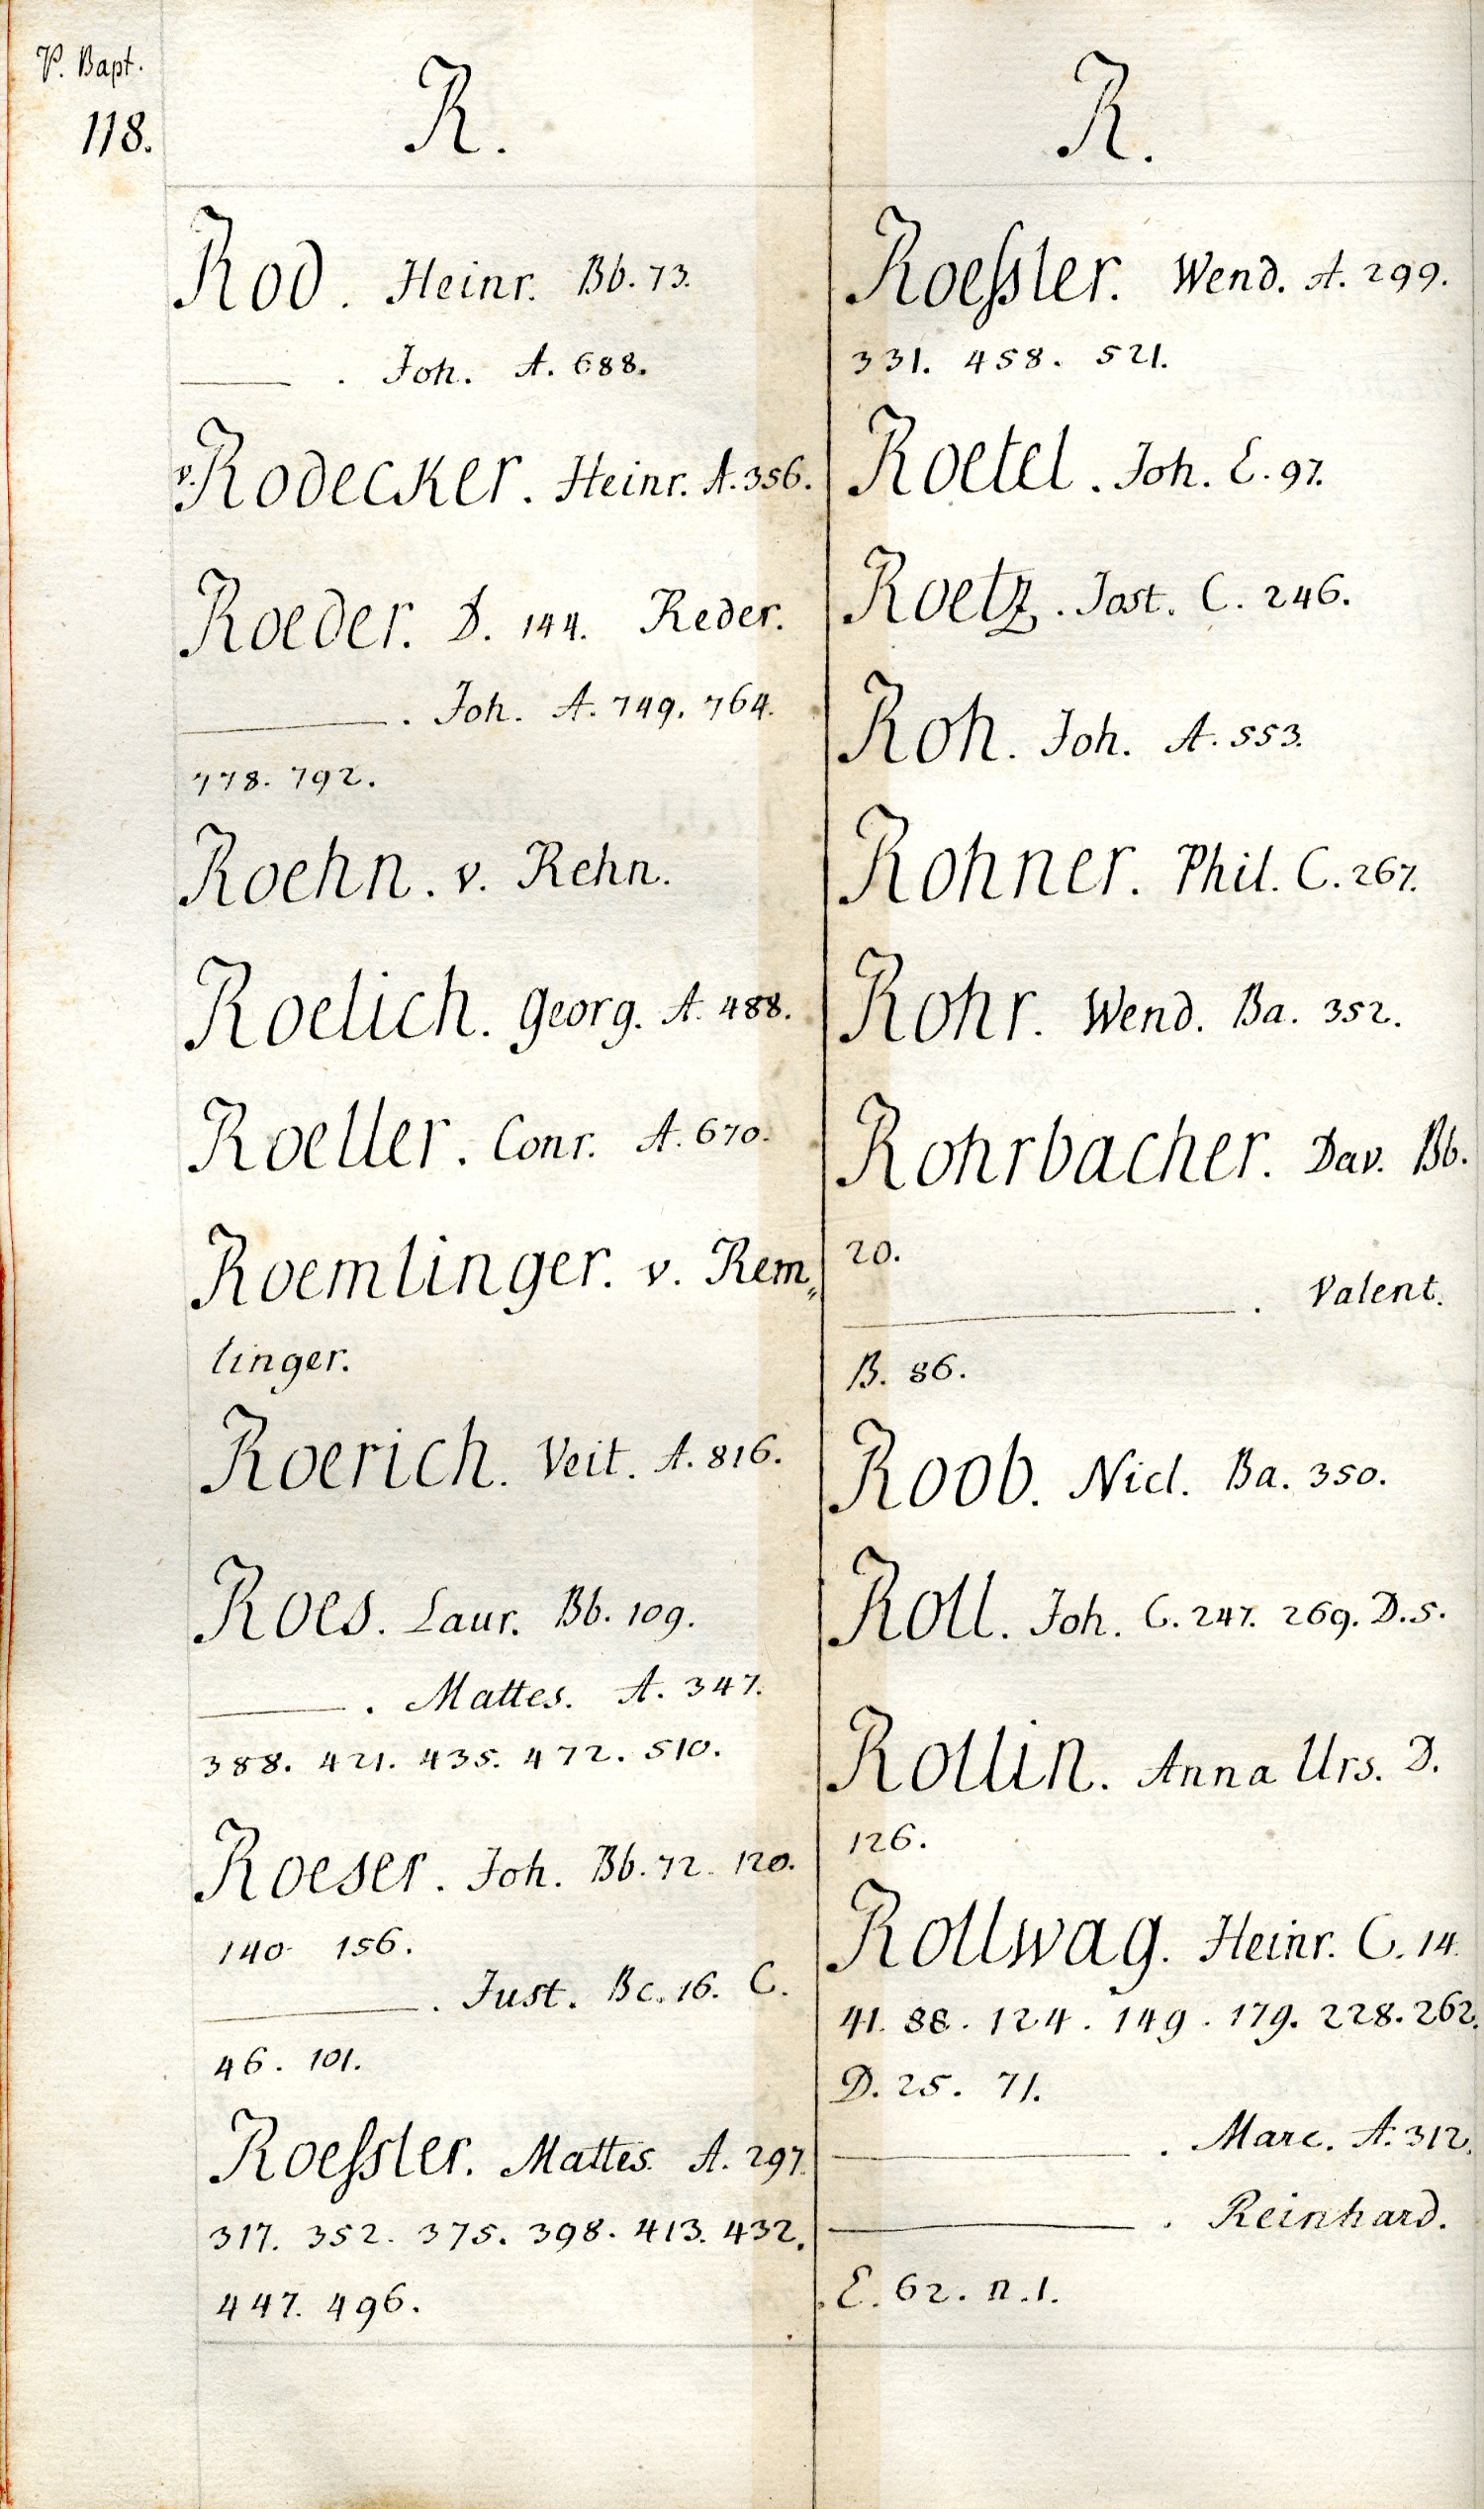 P. Bapt.
118.
R.
Rod. Heinr. Bb. 73.
——— . Joh. A. 688.
v. Rodecker. Heinr. A. 356.
Roeder. D. 144. Reder.
——— . Joh. A. 749. 764.
778. 792.
Roehn. v. Rehn.
Roelich. Georg. A. 488.
Roeller. Conr. A. 670.
Roemlinger. v. Rem„
linger.
Roerich. Veit. A. 816.
Roes. Laur. Bb. 109.
——— . Mattes. A. 347.
388. 421. 435. 472. 510.
Roeser. Joh. Bb. 72. 120.
140. 156.
——— . Just. Bc. 16. C.
46. 101.
Roeſsler. Mattes. A. 297.
317. 352. 375. 398. 413. 432.
447. 496.
R.
Roeſsler. Wend. A. 299.
331. 458. 521.
Roetel. Joh. E. 97.
Roetz. Jost. C. 246.
Roh. Joh. A. 553.
Rohner. Phil. C. 267.
Rohr. Wend. Ba. 352.
Rohrbacher. Dav. Bb.
20.
——— . Valent.
B. 86.
Roob. Nicl. Ba. 350.
Roll. Joh. C. 247. 269. D. 5.
Rollin. Anna Urs. D.
126.
Rollwag. Heinr. C. 14.
41. 88. 124. 149. 179. 228. 262.
D. 25. 71.
——— . Marc. A. 312.
——— . Reinhard.
E. 62. n. 1.